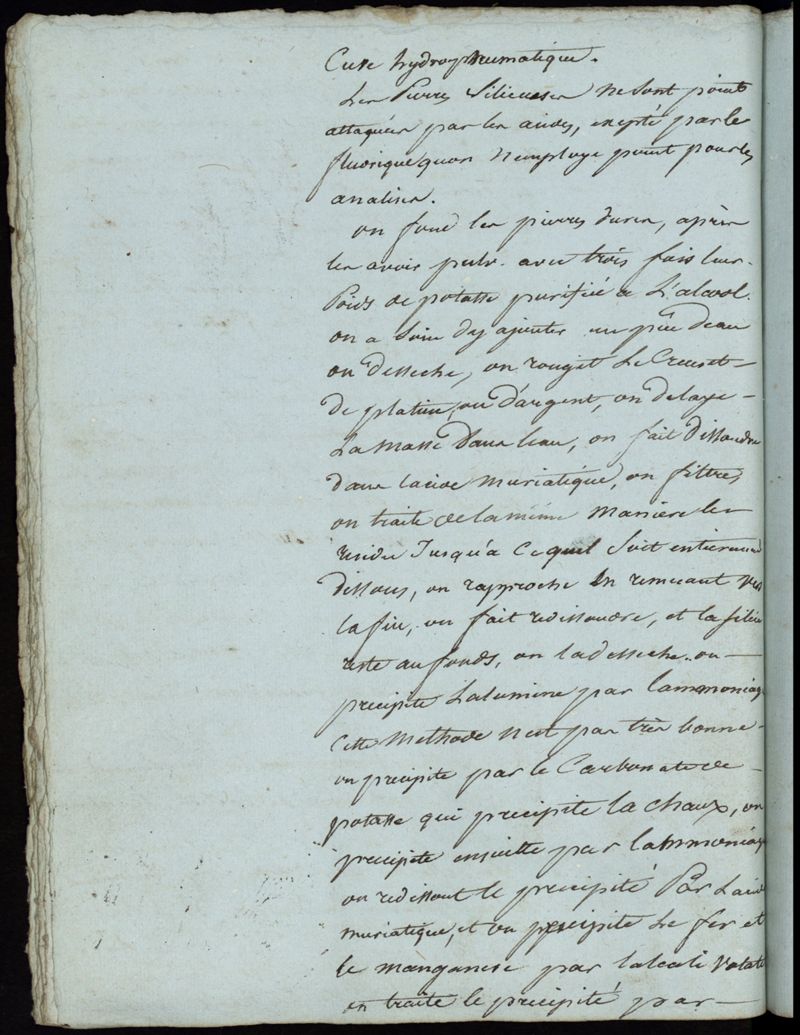 Cuve hydropneumatique.
Les Pierres Silicieuses ne sont point
attaquées par les acides, excepté par le
fluorique quon n'employe point pour les
analiser.
on fond les pierres dures, après
les avoir pulv. avec trois fois leur
Poids de potasse purifiée a L'alcool.
on a soin dy ajouter un peu deau
on desseche, on rougit Le Creuset
de platine, ou d'argent, on delaye
La masse dans leau, on fait dissoudre
dans lacide muriatique, on filtre,
on traite de la même manière le
residu Jusqu'a ce quil soit entierement
dissous, on rapproche en remuant vers
la fin, on fait redissoudre, et la silice
reste au fonds, on la desseche. on
precipite Lalumine par lammoniaq
Cette Methode nest pas très bonne
on precipite par le Carbonate de
potasse qui precipite la chaux, on
precipite ensuitte par lammoniaq
on redissout le precipité Par Lacide
muriatique, et on precipite Le fer et
le manganese par lalcali volatil
on traite le precipité par